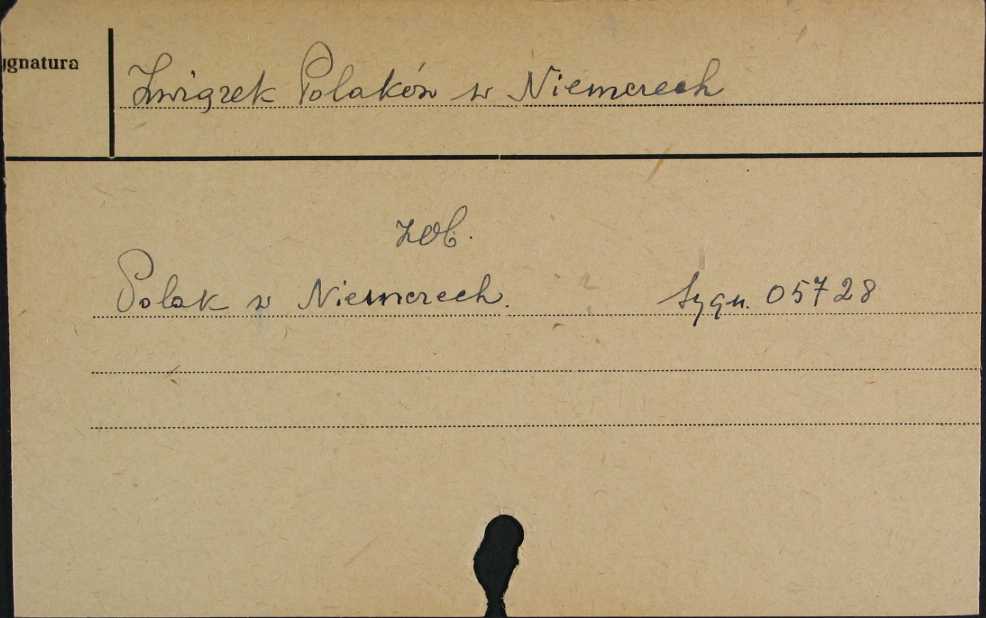 ygnatura
Związek Polaków w Niemczech
zob.
Polak w Niemczech. Sygn. 05728